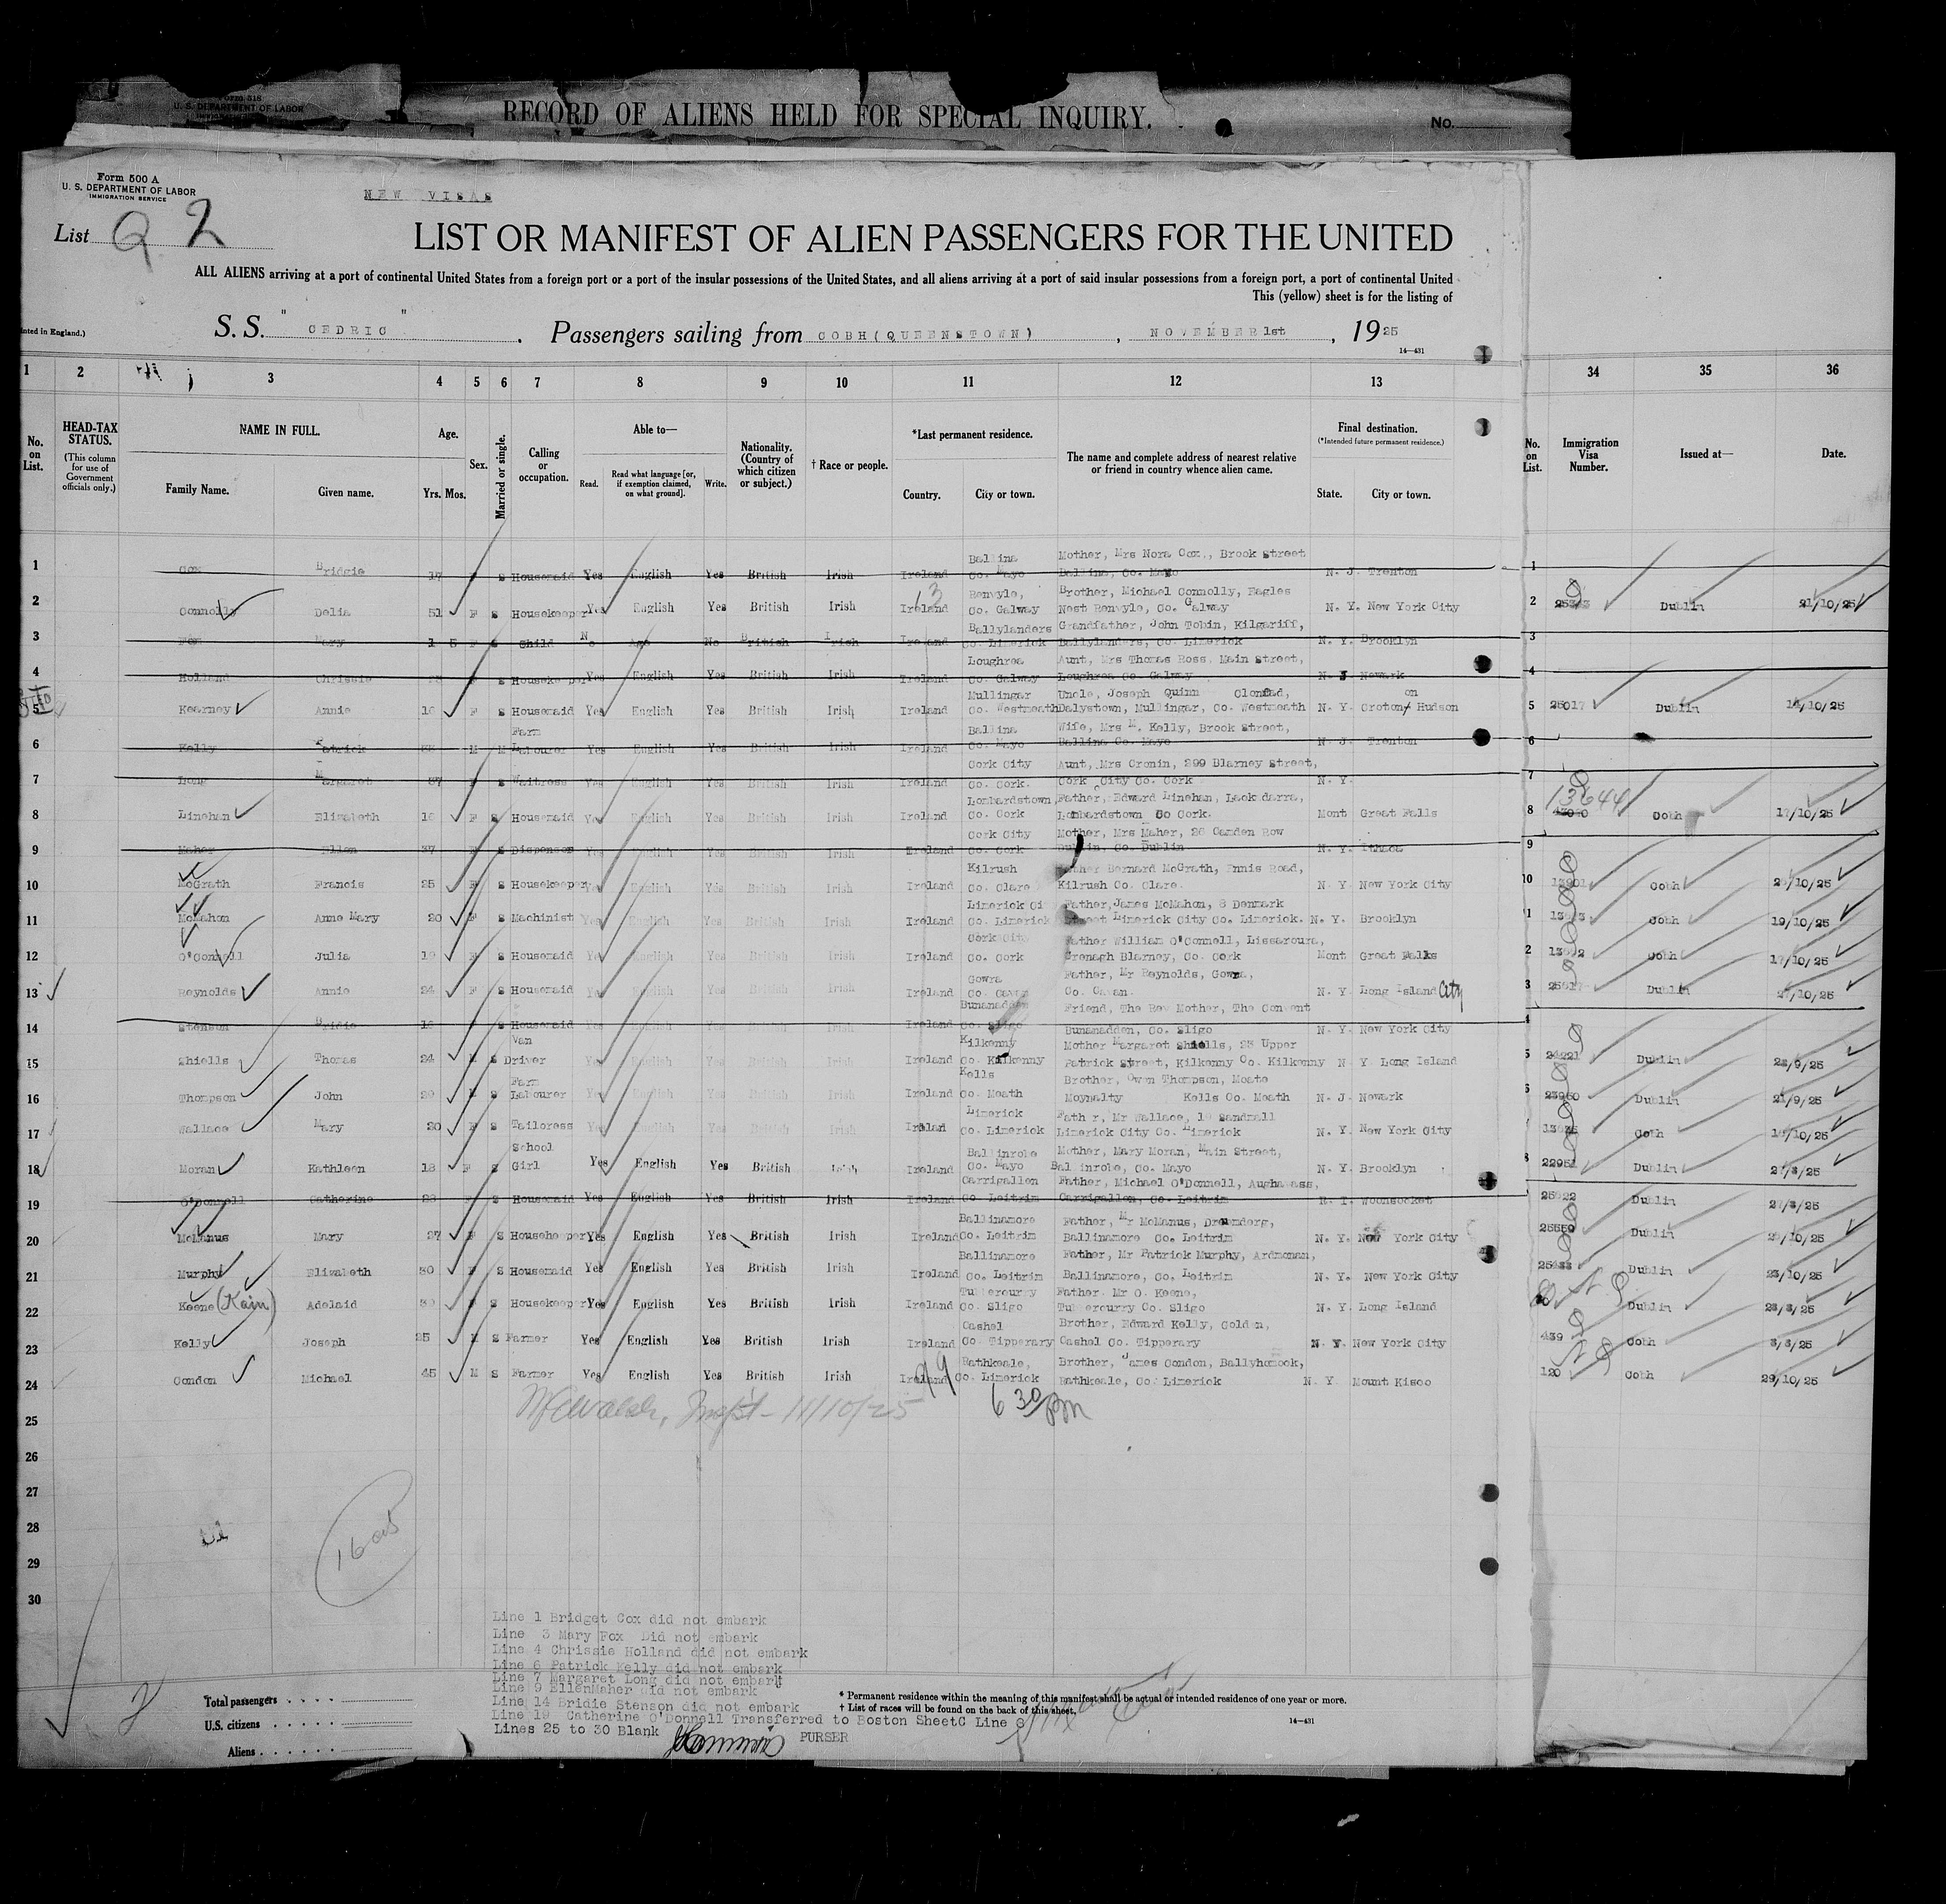 Form 518
U. S. DEPARTMENT OF LABOR
RECORD OF ALIENS HELD FOR SPECIAL INQUIRY.
No.
Form 500 A
U. S. DEPARTMENT OF LABOR
IMMIGRATION SERVICE
NEW VISAS
List Q 2
LIST OR MANIFEST OF ALIEN PASSENGERS FOR THE UNITED
ALL ALIENS arriving at a port of continental United States from a foreign port or a port of the insular possessions of the United States, and all aliens arriving at a port of said insular possessions from a foreign port, a port of continental United
This (yellow) sheet is for the listing of
S. S. " CEDRIC " Passengers sailing from COBH (QUEENSTOWN), NOVEMBER 1st, 1925
14—431
1 2 3 4 5 6 7 8 9 10 11 12 13 34 35 36
No. on List.
HEAD-TAX STATUS.
(This column for use of Government officials only.)
NAME IN FULL.
Family Name. Given name.
Age.
Yrs. Mos.
Sex.
Married or single.
Calling or occupation.
Able to—
Read. Read what language [or, if exemption claimed, on what ground]. Write.
Nationality. (Country of which citizen or subject.)
† Race or people.
*Last permanent residence.
Country. City or town.
The name and complete address of nearest relative or friend in country whence alien came.
Final destination.
(*Intended future permanent residence.)
State. City or town.
No. on List.
Immigration Visa Number.
Issued at—
Date.
1 Cox Bridgie 17 F S Housemaid Yes English Yes British Irish Ireland Ballina Co. Mayo Mother, Mrs Nora Cox., Brook Street Ballina, Co. Mayo N. J. Trenton 1
2 Connolly Delia 51 F S Housekeeper Yes English Yes British Irish Ireland Renvyle, Co. Galway Brother, Michael Connolly, Eagles Nest Renvyle, Co. Galway N. Y. New York City 2 Dublin 21/10/25
3 Fox Mary 1 5 F S Child No Age No British Irish Ireland Ballylanders Co. Limerick Grandfather, John Tobin, Kilgariff, Ballylanders, Co. Limerick N. Y. Brooklyn 3
4 Holland Chrissie F S Housekeeper Yes English Yes British Irish Ireland Loughrea Co. Galway Aunt, Mrs Thomas Ross, Main Street, Loughrea Co. Galway N. J Newark 4
5 Kearney Annie 16 F S Housemaid Yes English Yes British Irish Ireland Mullingar Co. Westmeath Uncle, Joseph Quinn Dalystown, Mullingar, Co. Westmeath N. Y. Croton on Hudson 5 25017 Dublin 14/10/25
6 Kelly Patrick M M Farm Labourer Yes English Yes British Irish Ireland Ballina Co. Mayo Wife, Mrs M. Kelly, Brook Street, Ballina Co. Mayo N. J. Trenton 6
7 Long Margaret 37 F S Waitress Yes English Yes British Irish Ireland Cork City Co. Cork Aunt, Mrs Cronin, 299 Blarney Street, Cork City Co. Cork N. Y. 7
8 Linehan Elizabeth 16 F S Housemaid Yes English Yes British Irish Ireland Lombardstown, Co. Cork Father, Edward Linehan, Lackdarra, Lombardstown Co Cork. Mont Great Falls 8 13644 Cobh 17/10/25
9 Maher Ellen 37 F S Dispenser Yes English Yes British Irish Ireland Cork City Co. Cork Mother, Mrs Maher, 26 Camden Row Dublin, Co. Dublin N. Y. Ithaca 9
10 McGrath Francis 25 F S Housekeeper Yes English Yes British Irish Ireland Kilrush Co. Clare Father Bernard McGrath, Ennis Road, Kilrush Co. Clare. N. Y. New York City 10 Cobh /10/25
11 McMahon Anne Mary 20 F S Machinist Yes English Yes British Irish Ireland Limerick Ci Co. Limerick Father, James McMahon, 8 Denmark Street Limerick City Co. Limerick. N. Y. Brooklyn 1 Cobh 19/10/25
12 O'Connell Julia 19 F S Housemaid Yes English Yes British Irish Ireland Cork City Co. Cork Father William O'Connell, Lissaroura, Grenagh Blarney, Co. Cork Mont Great Falls 2 Cobh 17/10/25
13 Reynolds Annie 24 F S Housemaid Yes English Yes British Irish Ireland Gowra Co. Cavan Father, Mr Reynolds, Gowra, Co. Cavan. N. Y. Long Island City 3 Dublin 27/10/25
14 Stenson Bridie F S Housemaid Yes English Yes British Irish Ireland Bunanadden Co. Sligo Friend, The Rev Mother, The Convent Bunanadden, Co. Sligo N. Y. New York City 4
15 Shiells Thomas 24 M S Van Driver Yes English Yes British Irish Ireland Kilkenny Co. Kilkenny Mother Margaret Shiells, 23 Upper Patrick Street, Kilkenny Co. Kilkenny N Y Long Island 5 24221 Dublin /9/25
16 Thompson John 29 M S Farm Labourer Yes English Yes British Irish Ireland Kells Co. Meath Brother, Owen Thompson, Moate Moynalty Kells Co. Meath N. J. Newark 6 23960 Dublin 21/9/25
17 Wallace Mary 20 F S Tailoress Yes English Yes British Irish Ireland Limerick Co. Limerick Fath r, Mr Wallace, 19 Sandmall Limerick City Co. Limerick N. Y. New York City 7 Cobh /10/25
18 Moran Kathleen 18 F S School Girl Yes English Yes British Irish Ireland Ballinrobe Co. Mayo Mother, Mary Moran, Main Street, Bal inrobe, Co. Mayo N. Y. Brooklyn 8 22951 Dublin 27/8/25
19 O'Donnell Catherine 23 F S Housemaid Yes English Yes British Irish Ireland Carrigallen Co. Leitrim Father, Michael O'Donnell, Aughawass, Carrigallen, Co. Leitrim R. I. Woonsocket 25922 Dublin 27/8/25
20 McManus Mary 27 F S Househe per Yes English Yes British Irish Ireland Ballinamore Co. Leitrim Father, Mr McManus, Ballinamore Co. Leitrim N. Y. New York City 25559 Dublin /10/25
21 Murphy Elizabeth 30 F S Housemaid Yes English Yes British Irish Ireland Ballinamore Co. Leitrim Father, Mr Patrick Murphy, Ardmonan, Ballinamore, Co. Leitrim N. Y. New York City Dublin 23/10/25
22 Keene (Kain) Adelaid 30 F S Housekeeper Yes English Yes British Irish Ireland Tubbercurry Co. Sligo Father. Mr O. Keene, Tubbercurry Co. Sligo N. Y. Long Island Dublin 28/8/25
23 Kelly Joseph 25 M S Farmer Yes English Yes British Irish Ireland Cashel Co Tipperary Brother, Edward Kelly, Golden, Cashel Co. Tipperary N. Y. New York City 439 Cobh 8/8/25
24 Condon Michael 45 M S Farmer Yes English Yes British Irish Ireland Rathkeale, Co. Limerick Brother, James Condon, Ballyhomock, Rathkeale, Co. Limerick N. Y. Mount Kisco 120 Cobh 29/10/25
Insp't - 11/10/25 99 6 30 pm
25
26
27
28
29
30
Line 1 Bridget Cox did not embark
Line 3 Mary Fox Did not embark
Line 4 Chrissie Holland did not embark
Line 6 Patrick Kelly did not embark
Line 7 Margaret Long did not embark
Line 9 EllenMaher did not embark
Line 14 Bridie Stenson did not embark
Line 19 Catherine O'Donnell Transferred to Boston SheetC Line 8
Lines 25 to 30 Blank
PURSER
Total passengers
U.S. citizens
Aliens
* Permanent residence within the meaning of this manifest shall be actual or intended residence of one year or more.
† List of races will be found on the back of this sheet.
14—431